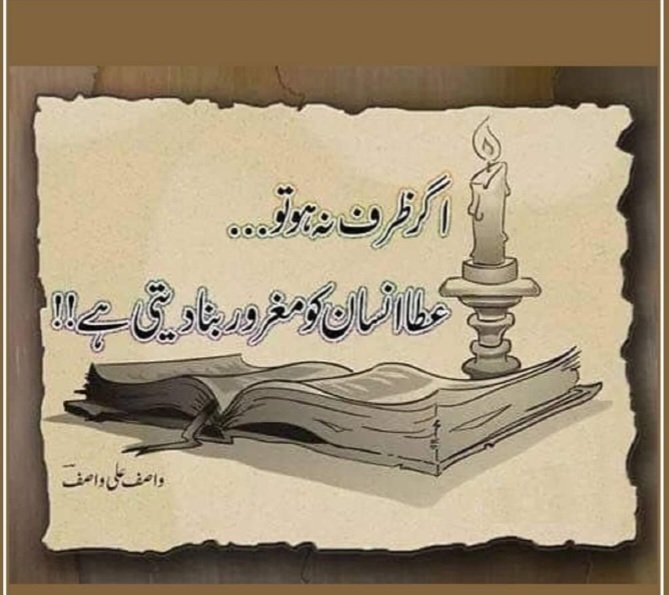 اگر ظرف نہ ہو تو...
عطا انسان کو مغرور بنا دیتی ہے!!
واصف علی واصفؔ